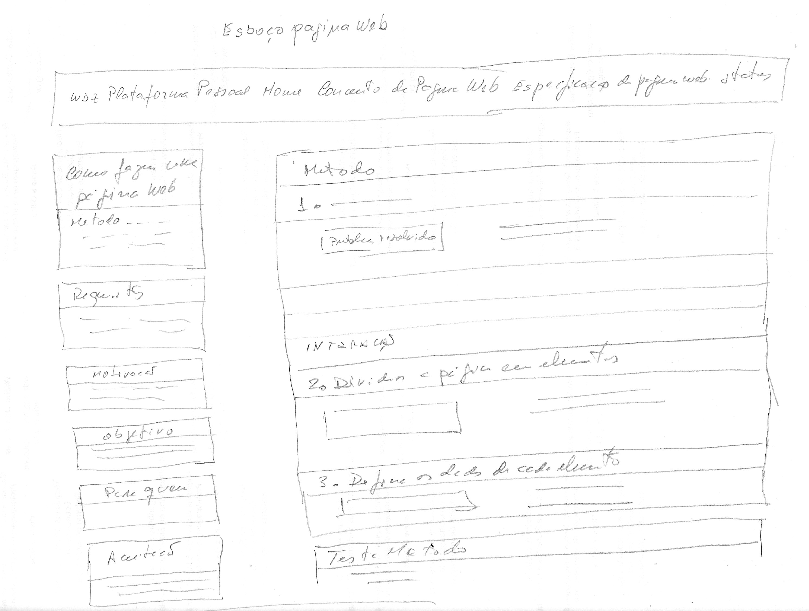 Esboço pagina Web
Plataforma Pessoal Home Conceito de Página Web Especificação de pagina web status
Como fazer uma
página Web
Metodo
Requisitos
Motivação
Objetivo
Para quem
Aceitação
Metodo
1.
Problema resolvido
INTERAÇÃO
2. Dividir a página em elementos
3. Define os dados de cada elemento
Teste Metodo